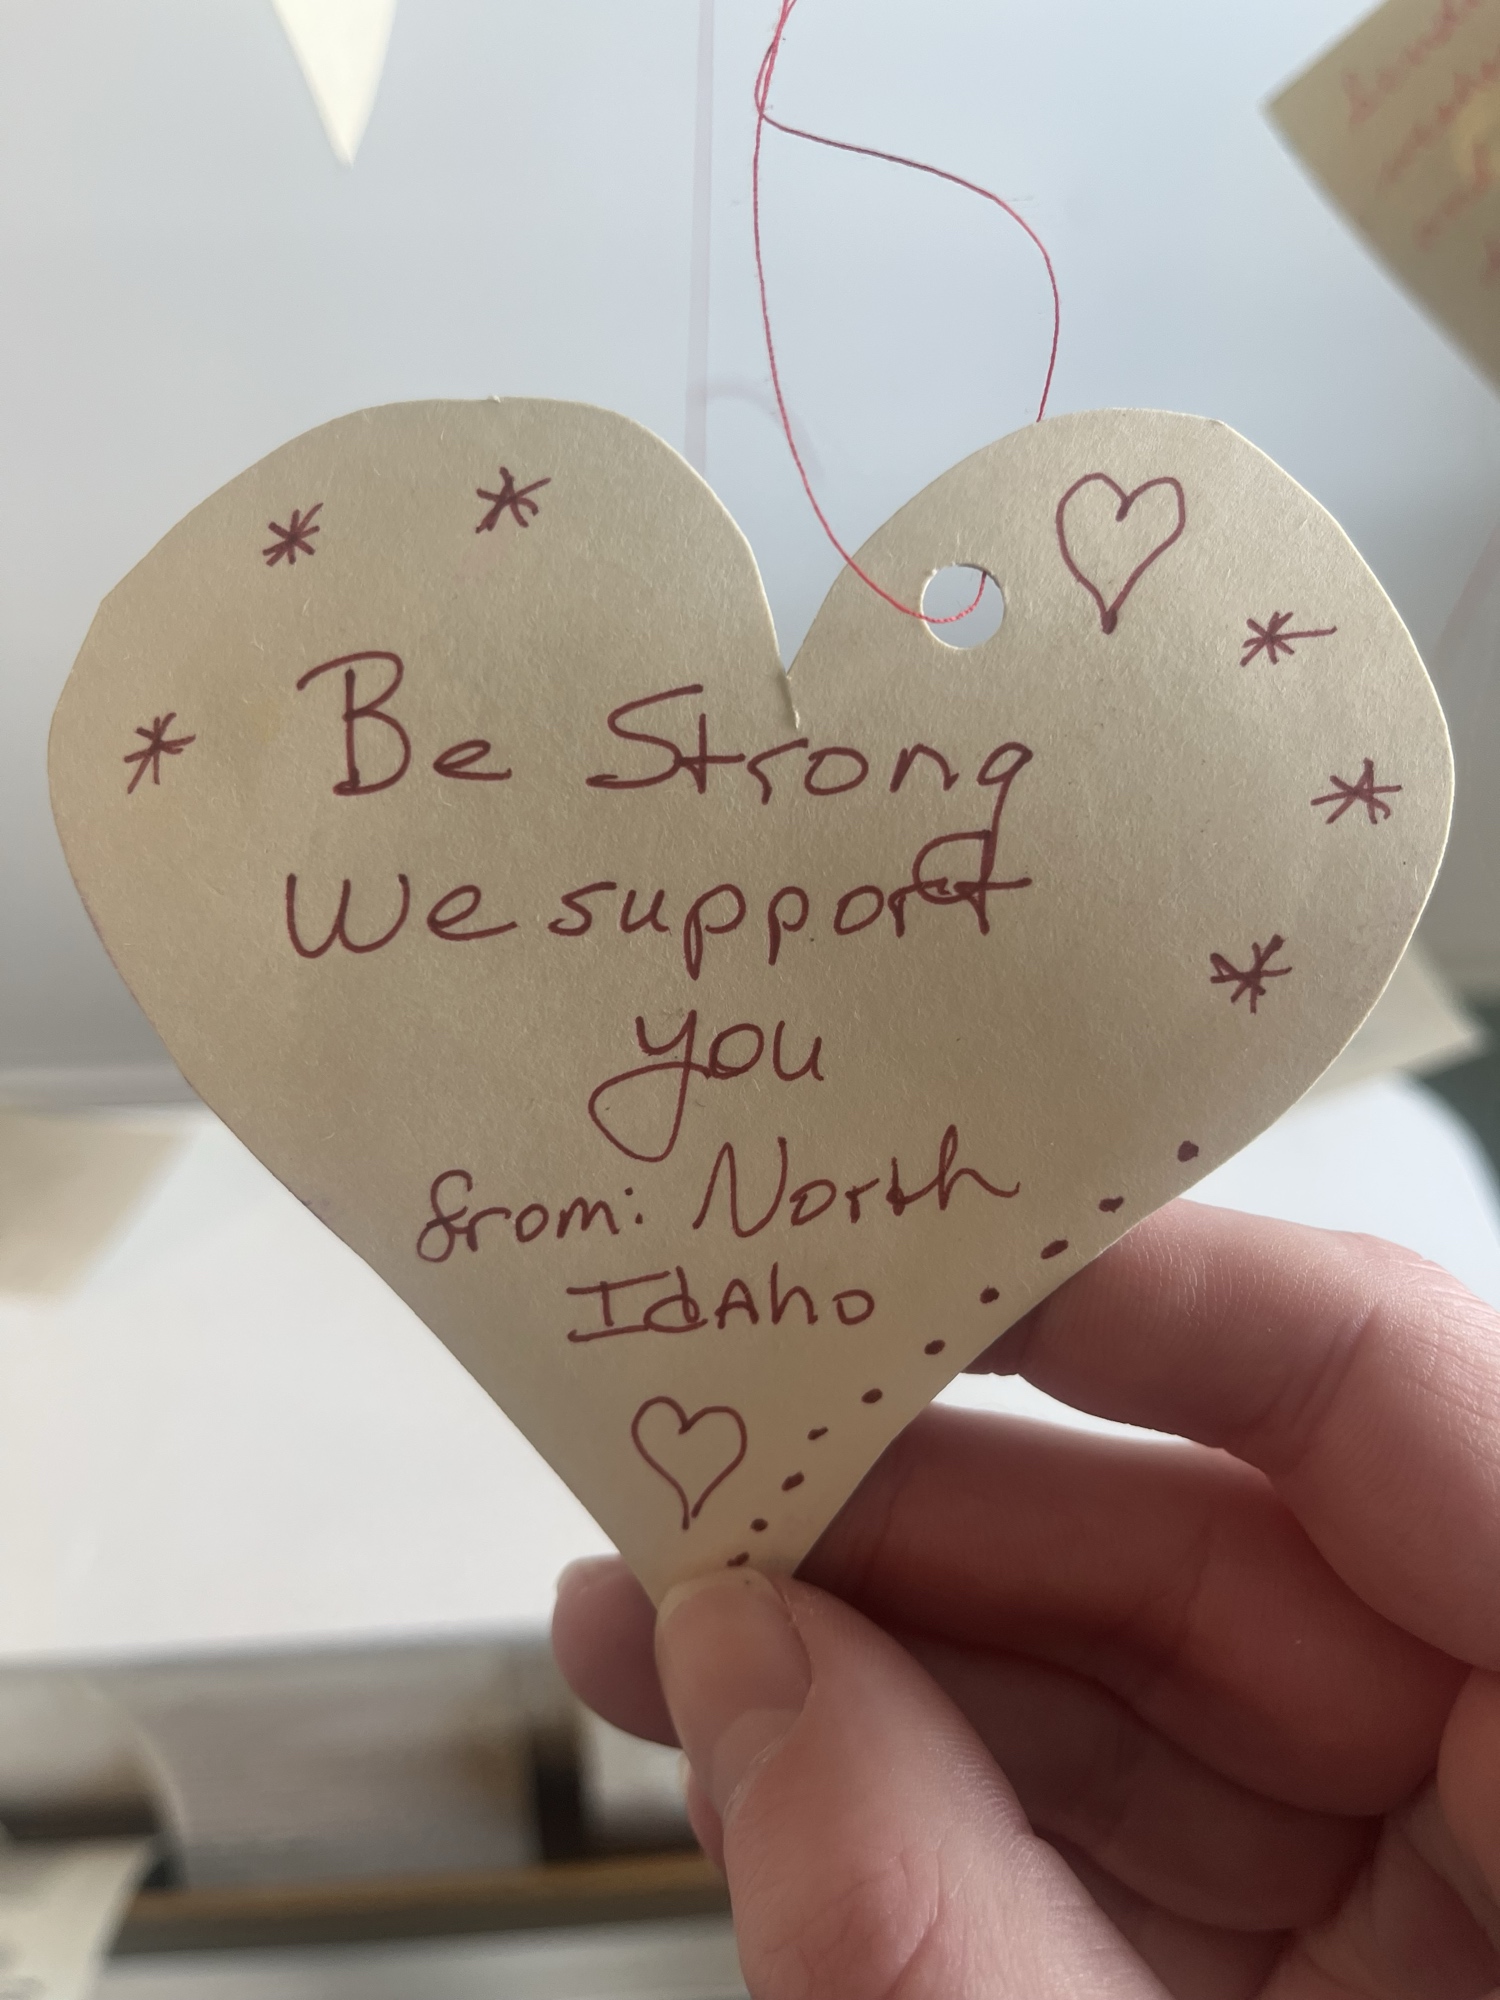 Be Strong
We support
you
from: North
IdAho